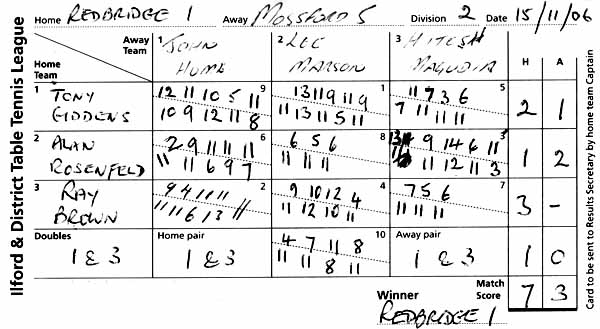 Ilford & District Table Tennis League
Home REDBRIDGE 1 Away MOSSFORD 5 Division 2 Date 15/11/06
Away Team 1 JOHN HOME
2 LEE MARSON
3 HITESH
H A
Home Team
1 TONY GIDDENS
9
12 11 10 5 11
10 9 12 11 8
1
13 11 9 11 9
11 13 11 5 11
5
11 7 3 6
7 11 11 11
2 1
2 ALAN ROSENFELD
6
2 9 11 11 11
11 11 6 9 7
8
6 5 6
11 11 11
3
9 14 6 11
11 12 11 3
1 2
3 RAY BROWN
2
9 4 11 11
11 11 6 13
4
9 10 12 4
11 12 10 11
7
7 5 6
11 11 11
3 -
Doubles
1 & 3
Home pair
1 & 3
10
4 7 11 8
11 11 8 11
Away pair
1 & 3
1 0
Winner REDBRIDGE 1
Match Score 7 3
Card to be sent to Results Secretary by home team Captain